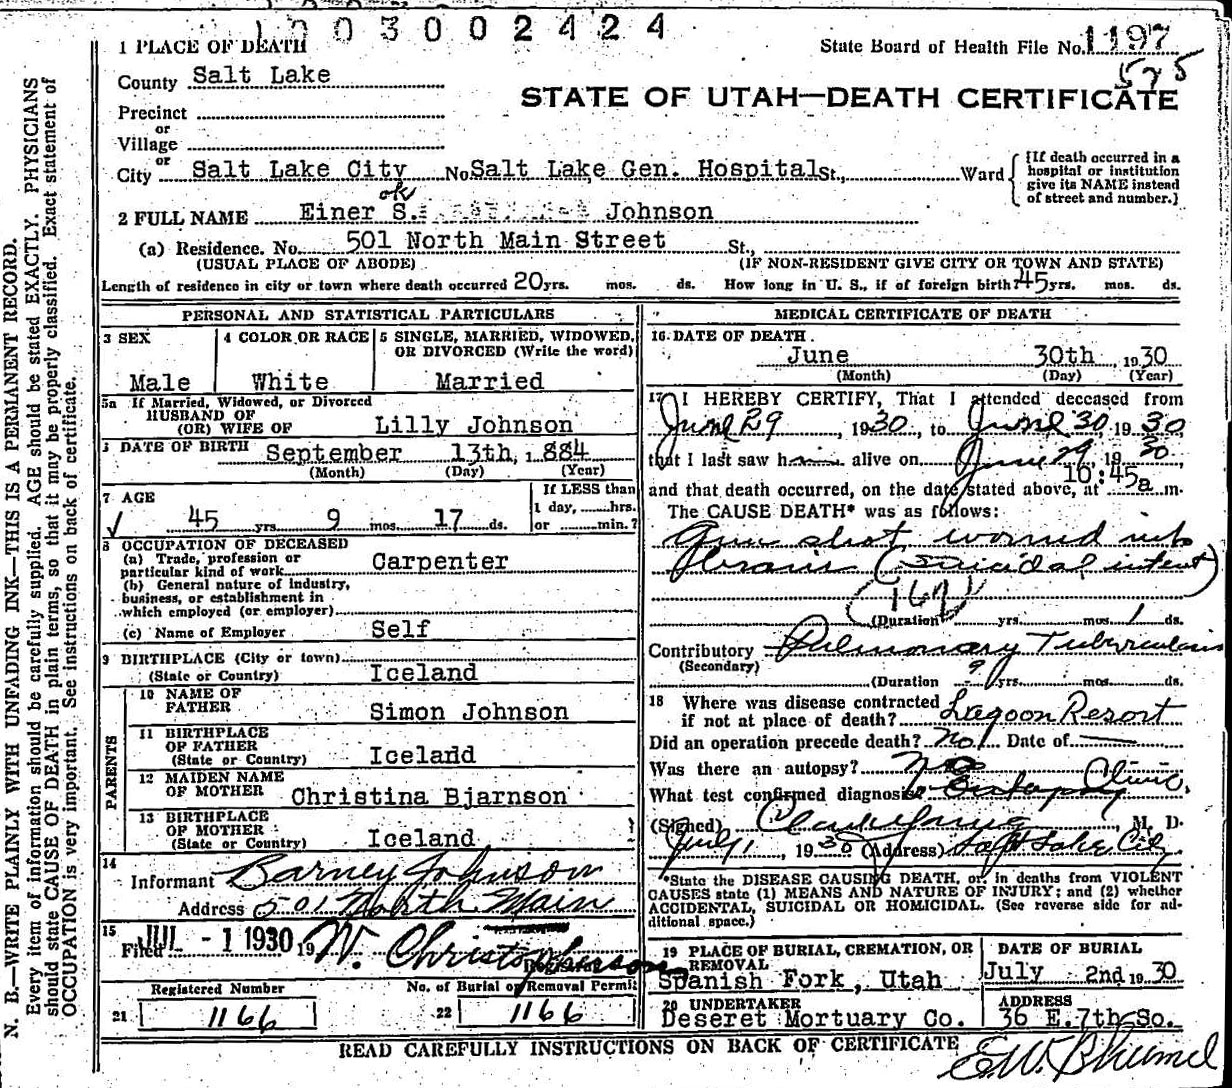 1003002424
1 PLACE OF DEATH
State Board of Health File No. 1197
575
County Salt Lake
STATE OF UTAH—DEATH CERTIFICATE
Precinct
or
Village
or
City Salt Lake City No Salt Lake Gen. Hospital St., Ward
{If death occurred in a
hospital or institution
give its NAME instead
of street and number.}
ok
2 FULL NAME Einer S. Johnson
(a) Residence. No. 501 North Main Street St.,
(USUAL PLACE OF ABODE) (IF NON-RESIDENT GIVE CITY OR TOWN AND STATE)
Length of residence in city or town where death occurred 20 yrs. mos. ds. How long in U. S., if of foreign birth? 45 yrs. mos. ds.
PERSONAL AND STATISTICAL PARTICULARS
3 SEX
Male
4 COLOR OR RACE
White
5 SINGLE, MARRIED, WIDOWED,
OR DIVORCED (Write the word)
Married
5a If Married, Widowed, or Divorced
HUSBAND OF
(OR) WIFE OF Lilly Johnson
DATE OF BIRTH September 13th, 1884
(Month) (Day) (Year)
7 AGE
45 yrs 9 mos. 17 ds.
If LESS than
1 day, hrs.
or min.?
8 OCCUPATION OF DECEASED
(a) Trade, profession or
particular kind of work Carpenter
(b) General nature of industry,
business, or establishment in
which employed (or employer)
(c) Name of Employer Self
9 BIRTHPLACE (City or town)
(State or Country) Iceland
PARENTS
10 NAME OF
FATHER Simon Johnson
11 BIRTHPLACE
OF FATHER
(State or Country) Iceland
12 MAIDEN NAME
OF MOTHER Christina Bjarnson
13 BIRTHPLACE
OF MOTHER
(State or Country) Iceland
14
Informant Barney Johnson
Address 501 North Main
15
Filed JUL -1 1930 19 W. Christopherson
Registrar
Registered Number
21 1166
No. of Burial or Removal Permit
22 1166
MEDICAL CERTIFICATE OF DEATH
16 DATE OF DEATH
June 30th 1930
(Month) (Day) (Year)
17 I HEREBY CERTIFY, That I attended deceased from
June 29, 1930, to June 30, 1930,
that I last saw him alive on June 29, 1930,
and that death occurred, on the date stated above, at 10:45a m.
The CAUSE DEATH* was as follows:
Gun shot wound into
brain (Suicidal intent)
167
(Duration yrs. mos. 1 ds.
Contributory Pulmonary Tuberculosis
(Secondary)
(Duration 9 yrs. mos. ds.
18 Where was disease contracted
if not at place of death? Lagoon Resort
Did an operation precede death? No Date of —
Was there an autopsy? No
What test confirmed diagnosis? Clinic.
(Signed) M. D.
July 1, 1930 (Address) Salt Lake City
*State the DISEASE CAUSING DEATH, or, in deaths from VIOLENT
CAUSES state (1) MEANS AND NATURE OF INJURY; and (2) whether
ACCIDENTAL, SUICIDAL OR HOMICIDAL. (See reverse side for ad-
ditional space.)
19 PLACE OF BURIAL, CREMATION, OR
REMOVAL
Spanish Fork, Utah
DATE OF BURIAL
July 2nd 1930
20 UNDERTAKER
Deseret Mortuary Co.
ADDRESS
36 E. 7th So.
READ CAREFULLY INSTRUCTIONS ON BACK OF CERTIFICATE
N. B.—WRITE PLAINLY WITH UNFADING INK—THIS IS A PERMANENT RECORD.
Every item of information should be carefully supplied. AGE should be stated EXACTLY. PHYSICIANS
should state CAUSE OF DEATH in plain terms, so that it may be properly classified. Exact statement of
OCCUPATION is very important. See instructions on back of certificate.